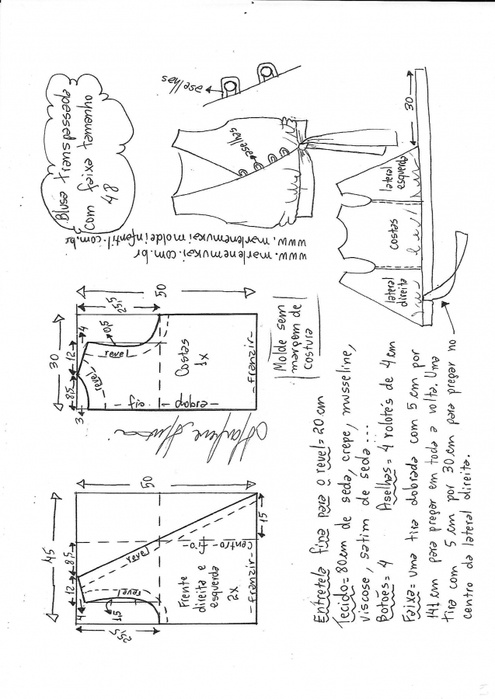 Blusa transpassada
com faixa tamanho
48
aselhas
aselhas
www.marlenemukai.com.br
www.marlenemukaimoldeinfantil.com.br
30
lateral
esquerda
costas
lateral
direita
50
25,5
30
12
4
8,5
3
0,5
revel
revel
Costas
1x
fio
dobra
franzir
Molde sem
margem de
costura
Marlene Mukai
50
45
8,5
12
4
1,5
25,5
15
revel
revel
centro
fio
Frente
direita e
esquerda
2x
franzir
Entretela fina para o revel = 20 cm
Tecido = 80 cm de seda, crepe, musseline,
viscose, satim de seda...
Botões = 4 Aselhas = 4 rolotés de 4 cm
Faixa = uma tira dobrada com 5 cm por
141 cm para pregar em toda a volta. Uma
tira com 5 cm por 30 cm para pregar no
centro da lateral direita.